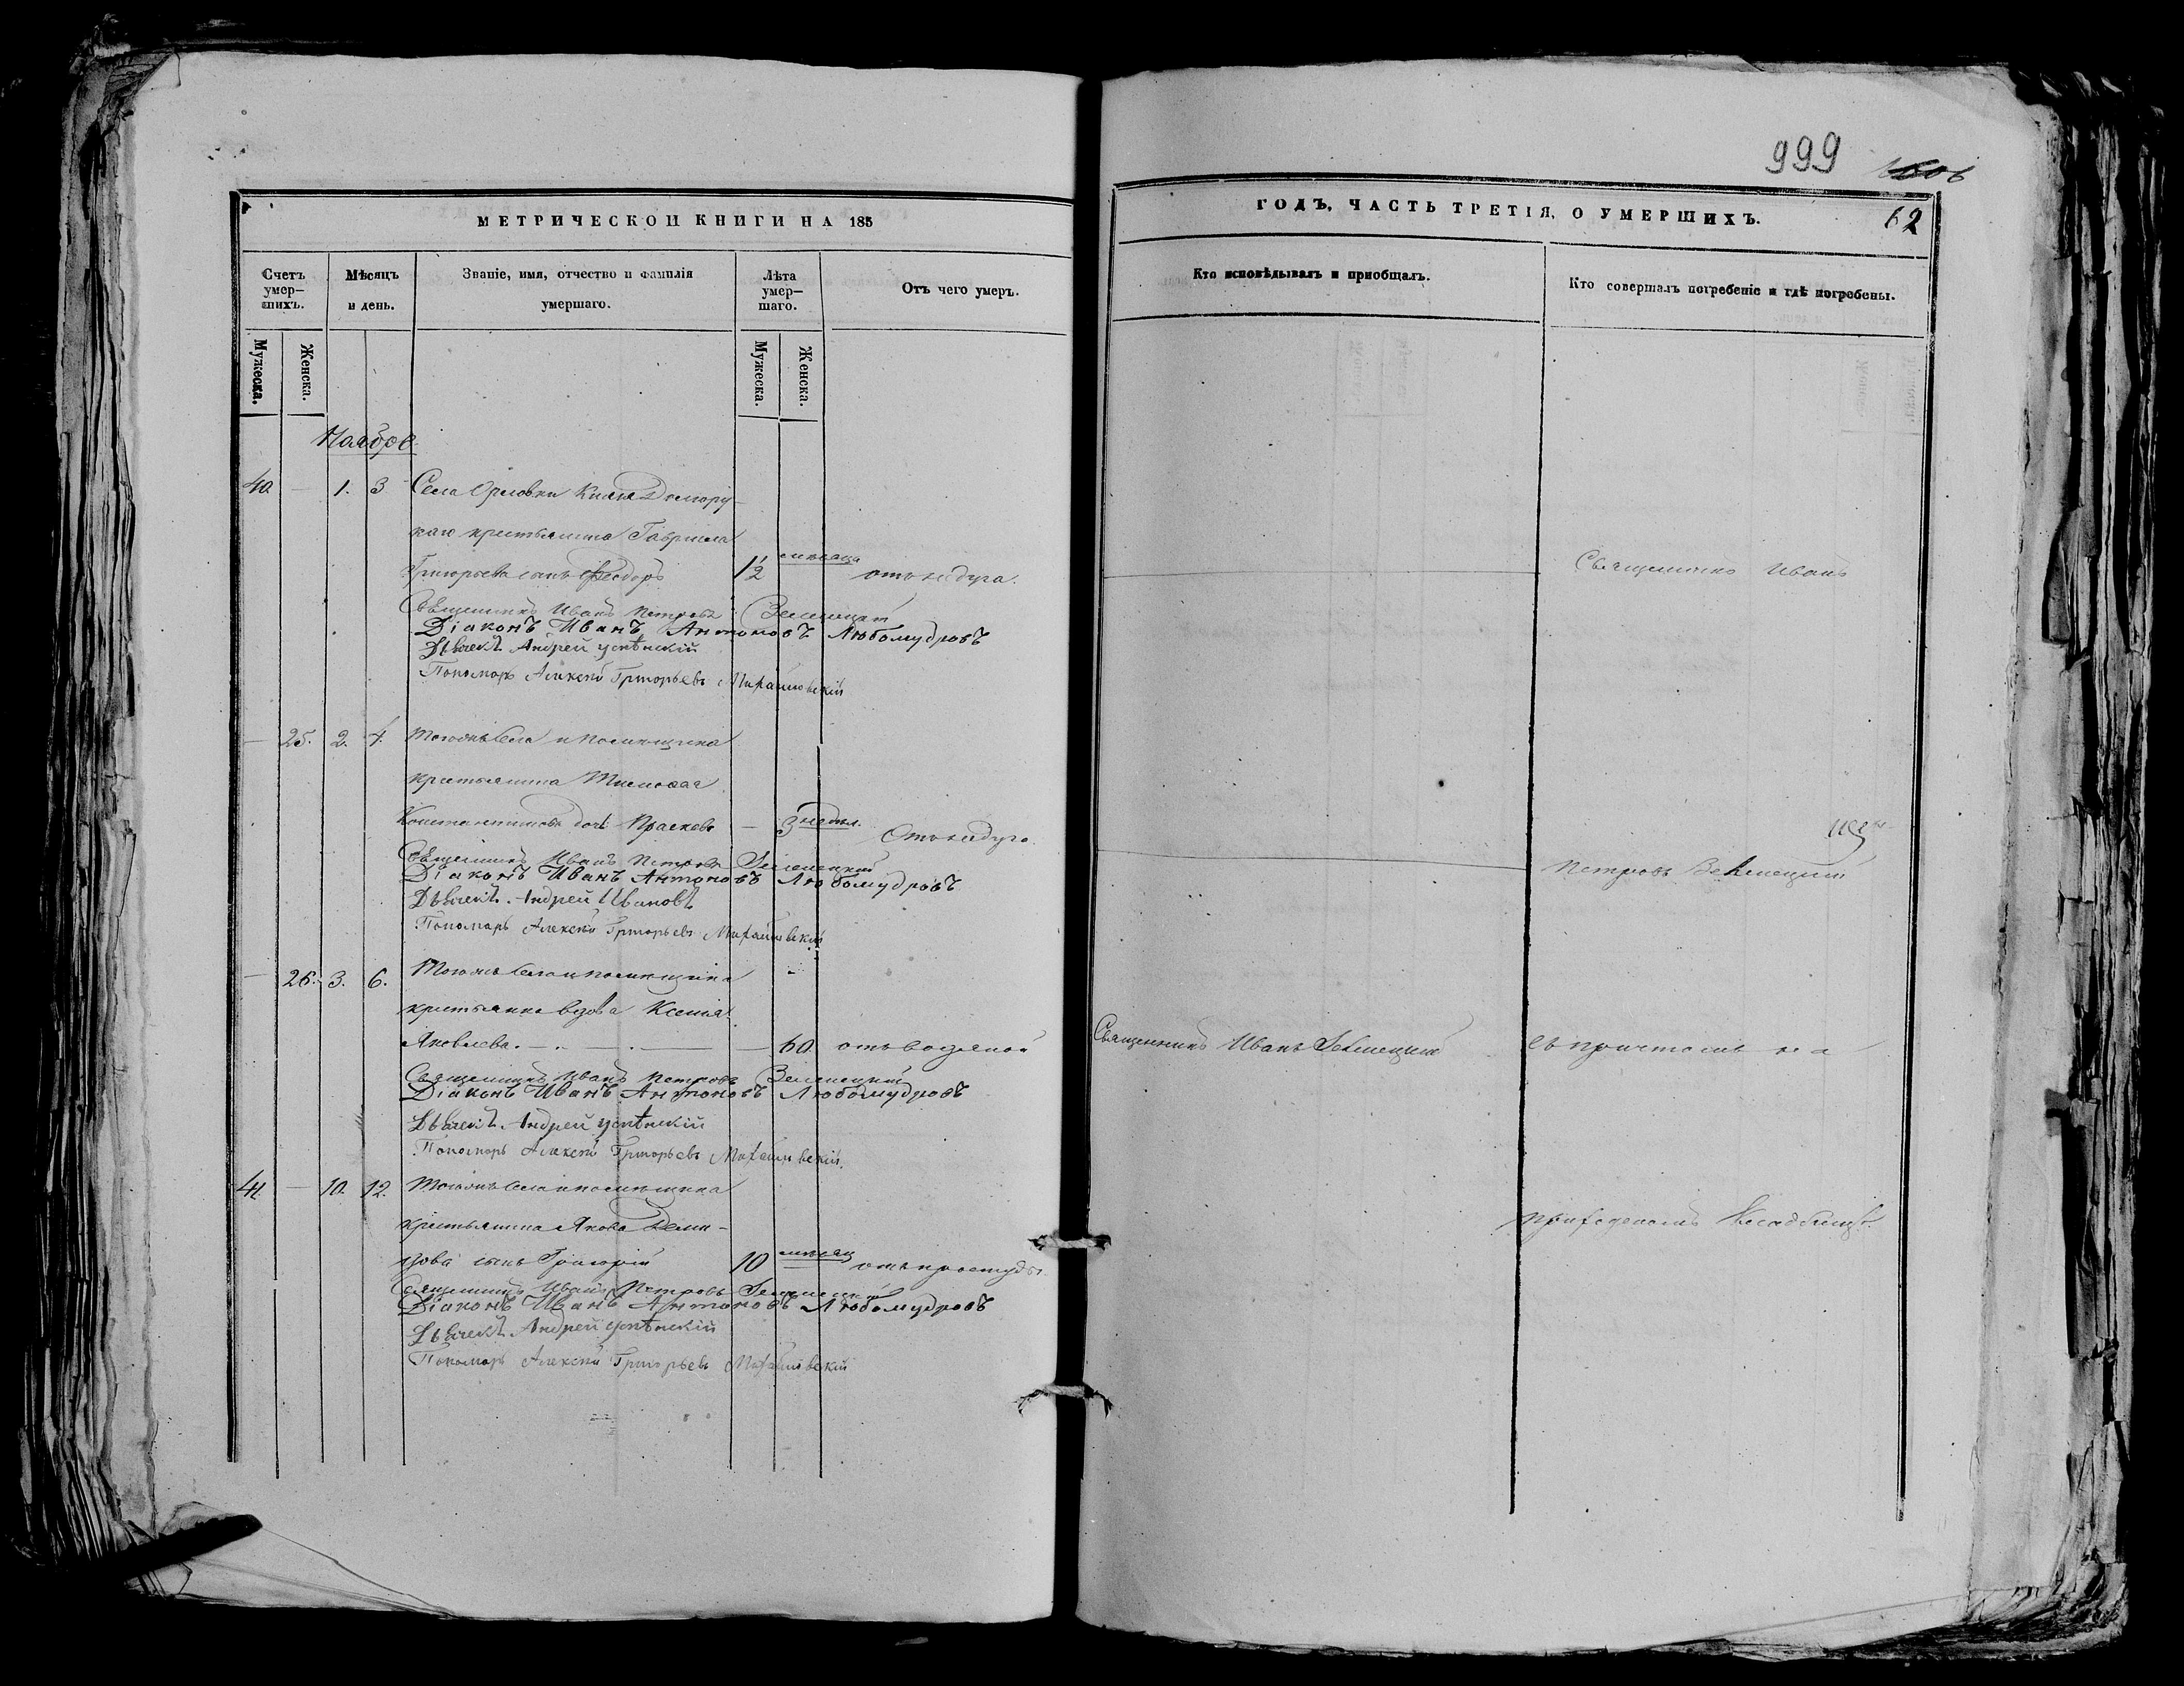 МЕТРИЧЕСКОЙ КНИГИ НА 185
Счетъ умер-
шихъ.
Мѣсяцъ
и день.
Званіе, имя, отчество и фамилія
умершаго.
Лѣта
умер-
шаго.
Отъ чего умеръ.
Мужеска.
Женска.
Мужеска.
Женска.
Ноябрь
40. — 1. 3 Села Орловки Князя Долгору-
каго крестьянина Гавріила
Григорьева сынъ Феодоръ 1½ мѣсяца отъ недуга.
Священникъ Иванъ Петровъ Зеленецкій
Діаконъ Иванъ Антоновъ Любомудровъ
Дьячекъ Андрей Успѣнскій
Пономарь Алексѣй Григорьевъ Михайловскій
— 25. 2. 4. Тогожъ села и помѣщика
крестьянина Тимофея
Константинова дочь Праскова — 3 недѣл. Отъ недуга
Священникъ Иванъ Петровъ Зеленецкій
Діаконъ Иванъ Антоновъ Любомудровъ
Дьячекъ Андрей Ивановъ
Пономарь Алексѣй Григорьевъ Михайловскій
— 26. 3. 6. Тогожъ села и помѣщика
крестьянка вдова Ксенія
Яковлева. — 60. отъ водяной
Священникъ Иванъ Петровъ Зеленецкій
Діаконъ Иванъ Антоновъ Любомудровъ
Дьячекъ Андрей Успѣнскій
Пономарь Алексѣй Григорьевъ Михайловскій.
41. — 10. 12. Тогожъ села и помѣщика
крестьянина Якова Деми-
дова сынъ Григорій 10 мѣсяц отъ простуды
Священникъ Иванъ Петровъ Зеленецкій
Діаконъ Иванъ Антоновъ Любомудровъ
Дьячекъ Андрей Успѣнскій
Пономарь Алексѣй Григорьевъ Михайловскій
999
62
ГОДЪ, ЧАСТЬ ТРЕТІЯ, О УМЕРШИХЪ.
Кто исповѣдывалъ и пріобщалъ.
Кто совершалъ погребеніе и гдѣ погребены.
Священникъ Иванъ
Петровъ Зеленецкій
Священникъ Иванъ Зеленецкій
съ причтомъ на
приходскомъ кладбищѣ.